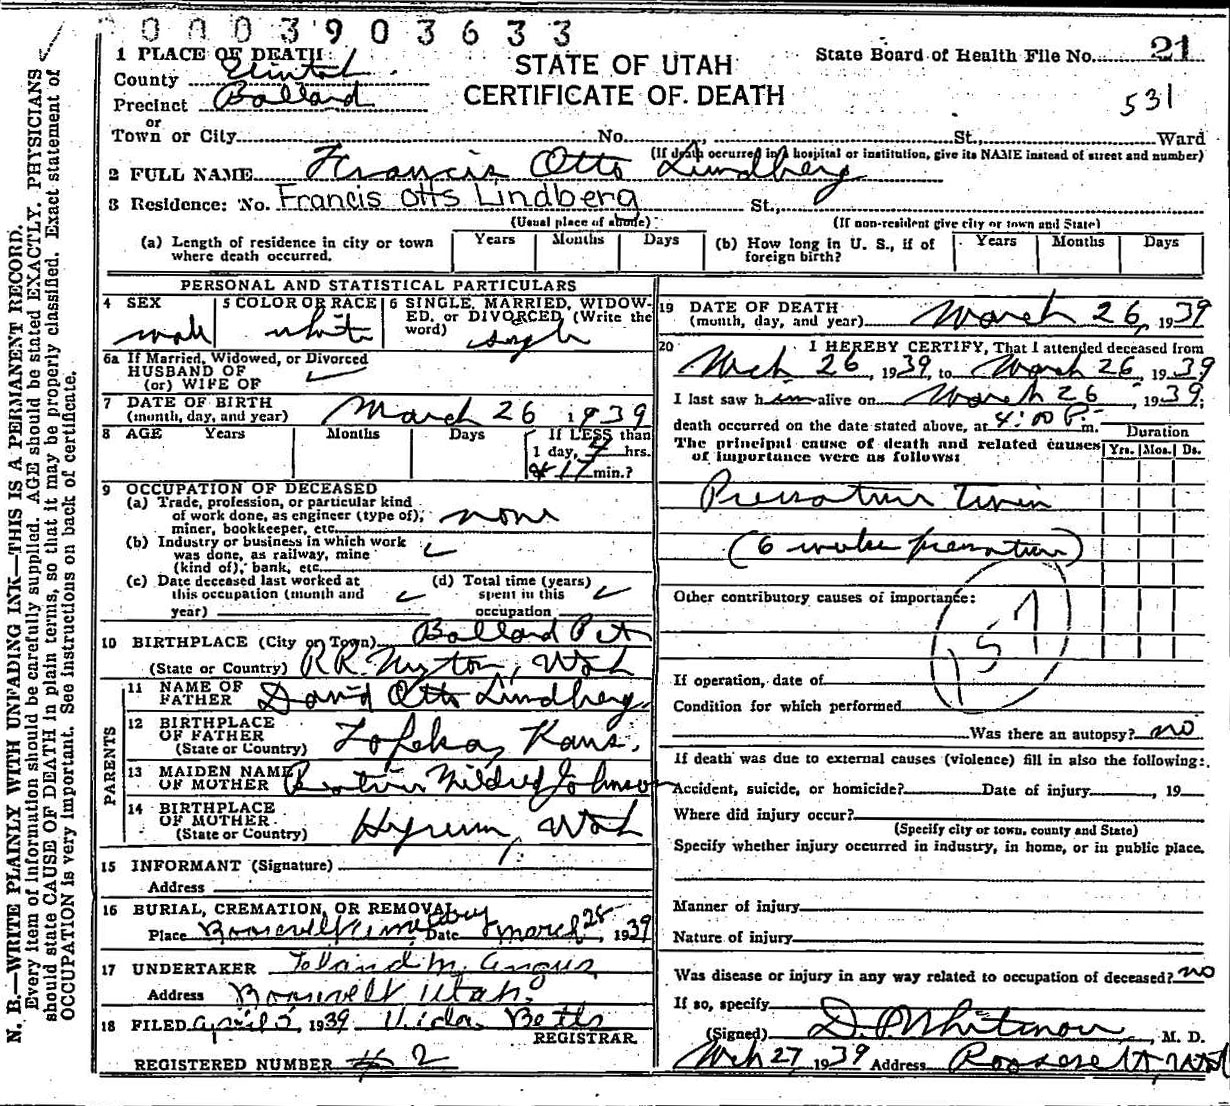 0003903633
1 PLACE OF DEATH
County Uintah
Precinct Ballard
or
Town or City No. St., Ward
STATE OF UTAH
CERTIFICATE OF DEATH
State Board of Health File No. 21
531
(If death occurred in a hospital or institution, give its NAME instead of street and number)
2 FULL NAME Francis Otto Lindberg
3 Residence: No. Francis otts Lindberg St.,
(Usual place of abode) (If non-resident give city or town and State)
(a) Length of residence in city or town where death occurred. Years Months Days
(b) How long in U. S., if of foreign birth? Years Months Days
PERSONAL AND STATISTICAL PARTICULARS
4 SEX male
5 COLOR OR RACE white
6 SINGLE, MARRIED, WIDOWED, or DIVORCED, (Write the word) single
6a If Married, Widowed, or Divorced
HUSBAND OF
(or) WIFE OF
7 DATE OF BIRTH
(month, day, and year) March 26 1939
8 AGE Years Months Days If LESS than
1 day, 4 hrs.
17 min.?
9 OCCUPATION OF DECEASED
(a) Trade, profession, or particular kind
of work done, as engineer (type of),
miner, bookkeeper, etc. none
(b) Industry or business in which work
was done, as railway, mine
(kind of), bank, etc.
(c) Date deceased last worked at
this occupation (month and
year)
(d) Total time (years)
spent in this
occupation
10 BIRTHPLACE (City or Town) Ballard Pct
(State or Country) RR. Myton, Utah
PARENTS
11 NAME OF
FATHER David Otto Lindberg
12 BIRTHPLACE
OF FATHER
(State or Country) Topeka, Kans.
13 MAIDEN NAME
OF MOTHER Mildred Johnson
14 BIRTHPLACE
OF MOTHER
(State or Country) Hyrum, Utah
15 INFORMANT (Signature)
Address
16 BURIAL, CREMATION, OR REMOVAL
Place Roosevelt Cemetery Date March 28, 1939
17 UNDERTAKER M. Angus
Address Roosevelt Utah.
18 FILED April 5, 1939 Vida Betts
REGISTRAR
REGISTERED NUMBER # 2
19 DATE OF DEATH
(month, day, and year) March 26, 1939
20 I HEREBY CERTIFY, That I attended deceased from
Mch 26, 1939, to March 26, 1939
I last saw him alive on March 26, 1939;
death occurred on the date stated above, at 4:00 P. m.
The principal cause of death and related causes
of importance were as follows:
Duration
Yrs. Mos. Ds.
Premature Twin
(6 weeks premature)
Other contributory causes of importance:
157
If operation, date of
Condition for which performed
Was there an autopsy? no
If death was due to external causes (violence) fill in also the following:
Accident, suicide, or homicide? Date of injury , 19
Where did injury occur?
(Specify city or town, county and State)
Specify whether injury occurred in industry, in home, or in public place.
Manner of injury
Nature of injury
Was disease or injury in any way related to occupation of deceased? no
If so, specify
(Signed) D. P. Whitmore, M. D.
Mch 27, 1939 Address Roosevelt, Utah
N. B.—WRITE PLAINLY WITH UNFADING INK—THIS IS A PERMANENT RECORD.
Every item of information should be carefully supplied. AGE should be stated EXACTLY. PHYSICIANS
should state CAUSE OF DEATH in plain terms, so that it may be properly classified. Exact statement of
OCCUPATION is very important. See instructions on back of certificate.